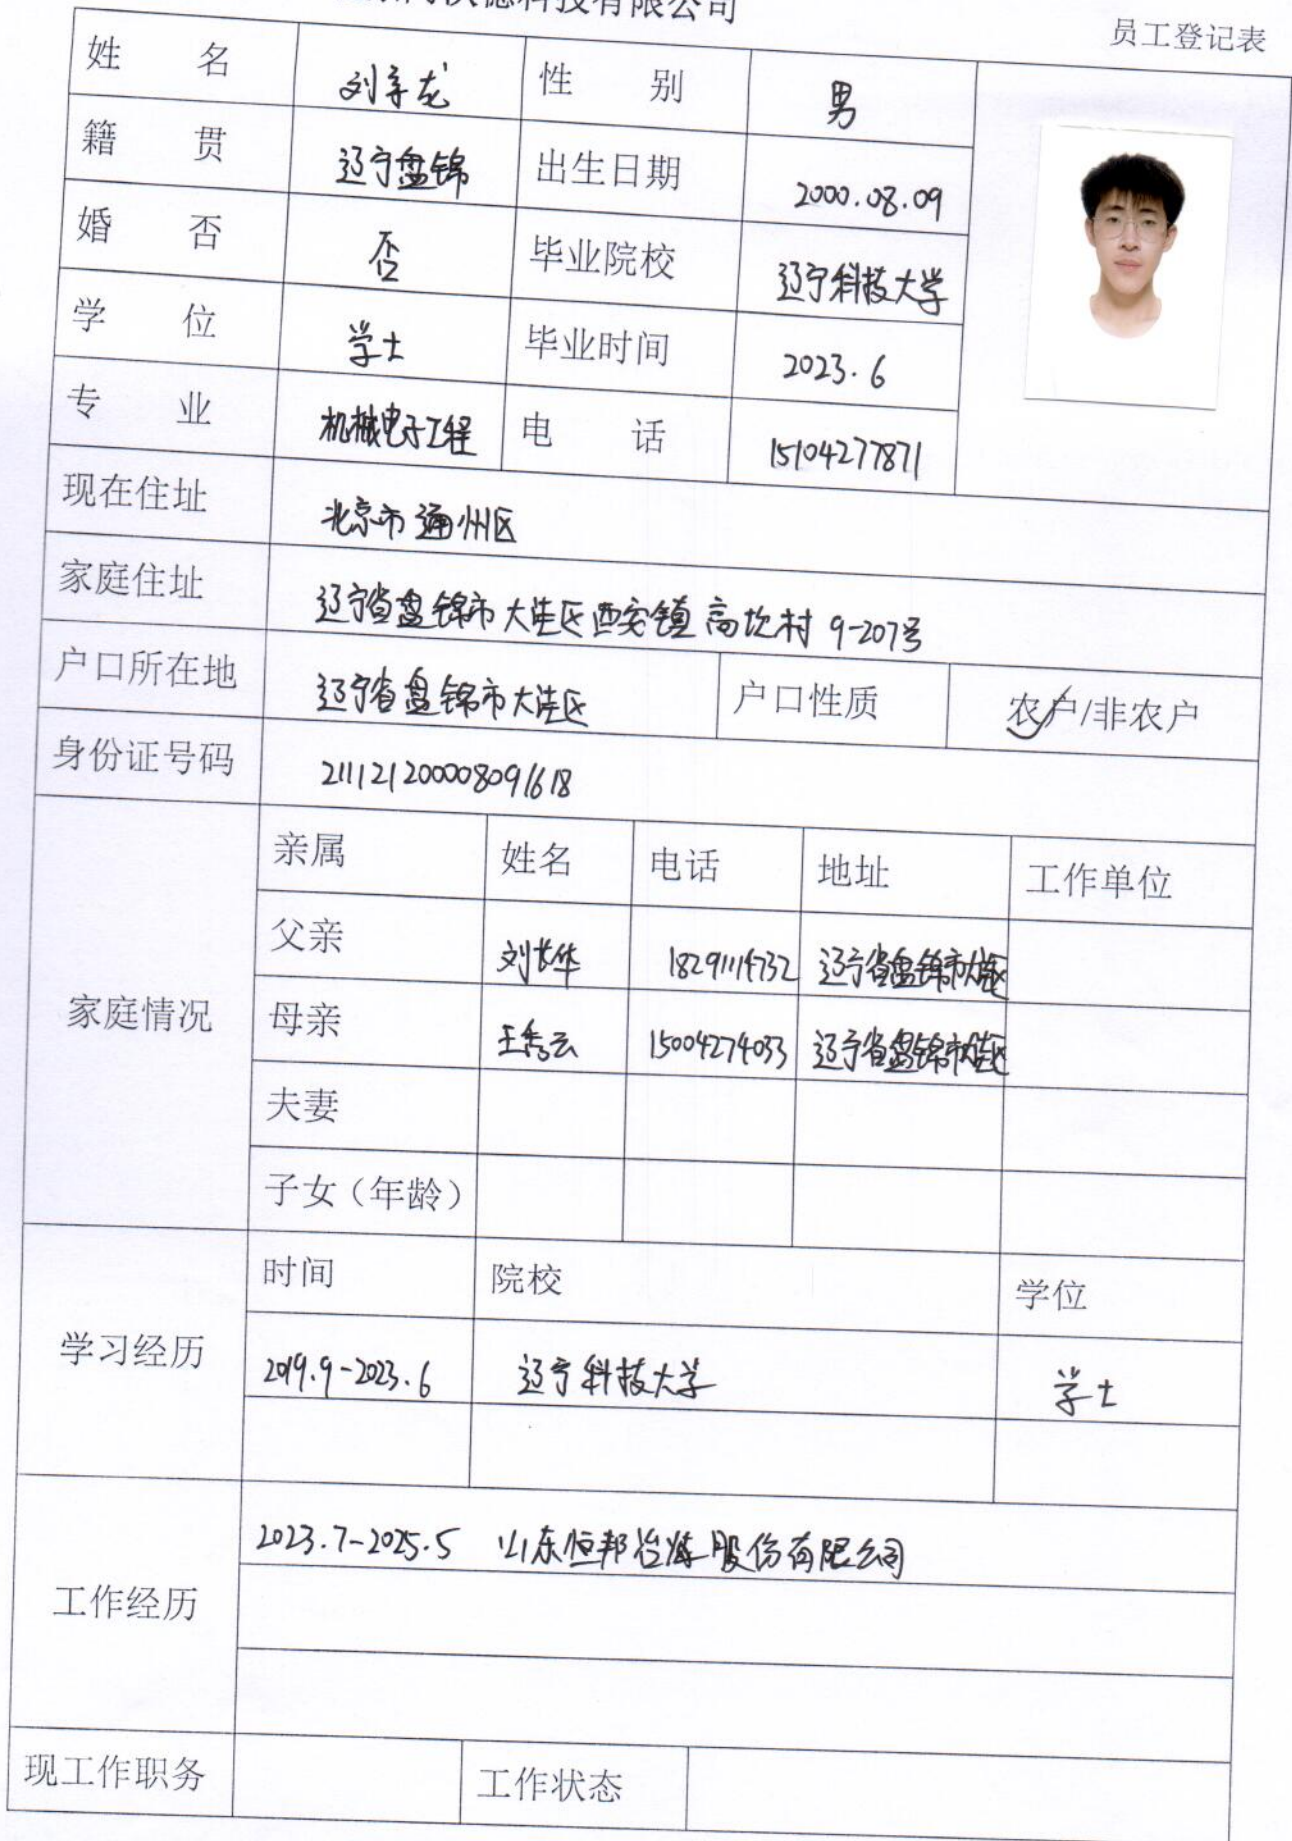 科技有限公司
员工登记表
姓 名 刘享龙 性 别 男
籍 贯 辽宁盘锦 出生日期 2000.08.09
婚 否 否 毕业院校 辽宁科技大学
学 位 学士 毕业时间 2023.6
专 业 机械电子工程 电 话 15104277871
现在住址 北京市通州区
家庭住址 辽宁省盘锦市大洼区西安镇高坎村9-207号
户口所在地 辽宁省盘锦市大洼区 户口性质 农户/非农户
身份证号码 211121200008091618
亲属 姓名 电话 地址 工作单位
父亲 刘长华 18291114732 辽宁省盘锦市大洼区
家庭情况
母亲 王秀云 15004274033 辽宁省盘锦市大洼区
夫妻
子女（年龄）
时间 院校 学位
学习经历
2019.9-2023.6 辽宁科技大学 学士
2023.7-2025.5 山东恒邦冶炼股份有限公司
工作经历
现工作职务 工作状态